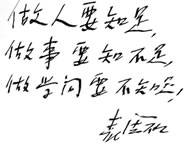 做人要知足,
做事要知不足,
做学问要不知足,